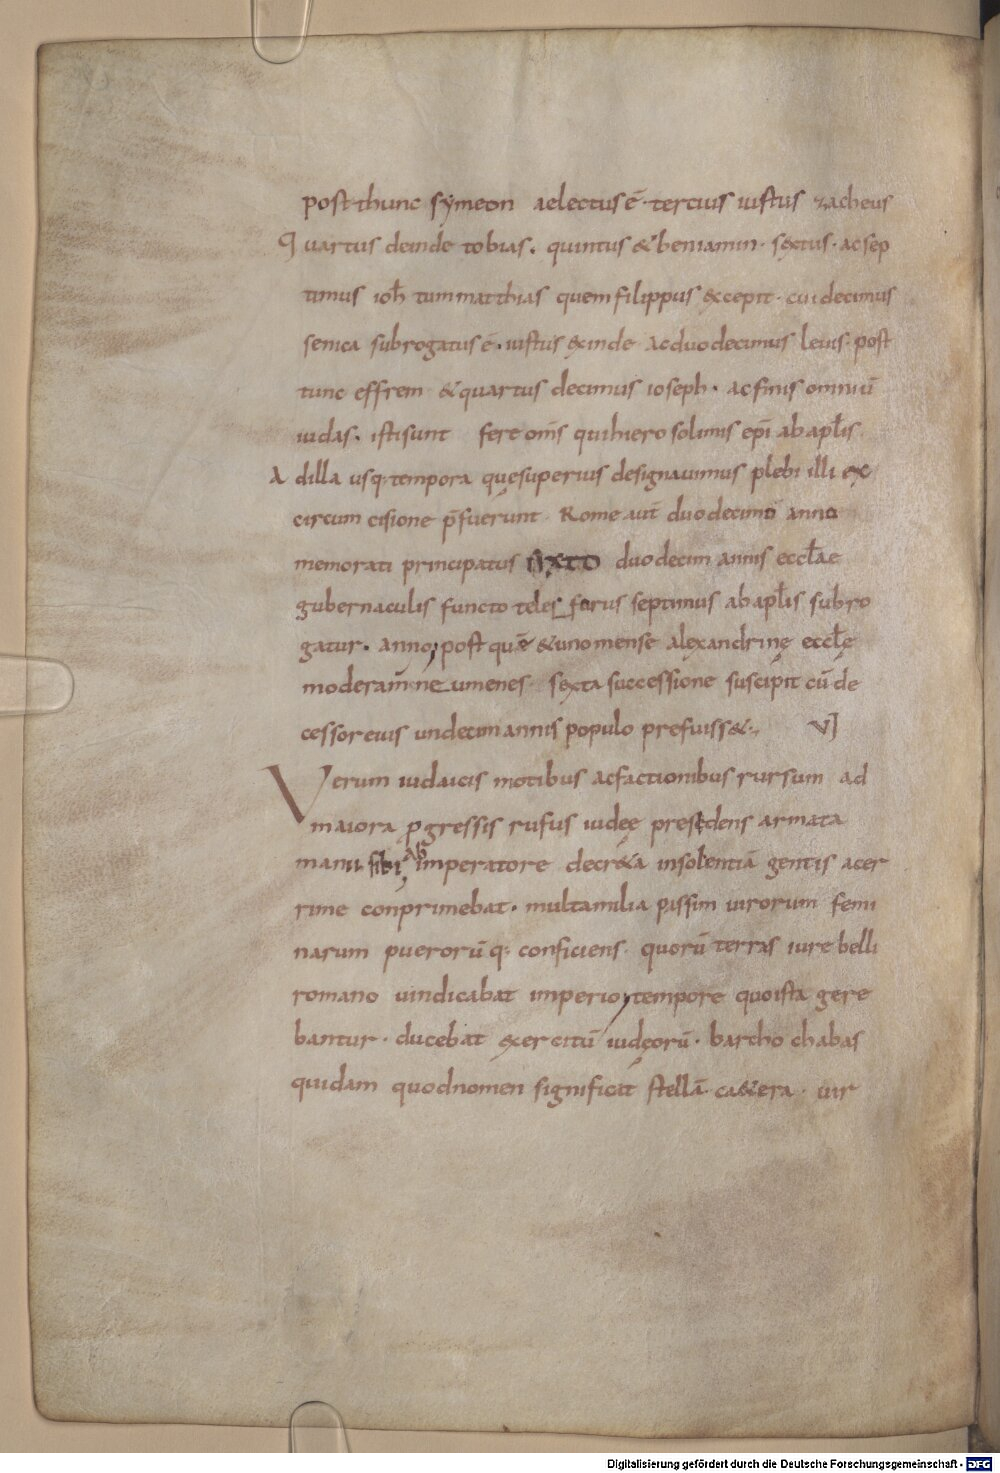 post hunc symeon aelectus ē· tercius iustus zacheus
Quartus deinde tobias. quintus & beniamin· sextus· ac sep
timus ioħ tum matthias quem filippus excepit· cui decimus
senica subrogatus ē· iustus exinde ac duodecimus leuis· post
tunc effrem· & quartus decimus ioseph· ac finis omniū
iudas. isti sunt fere om̄s qui hierosolimis ep̄i ab apl̄is
Ad illa usq; tempora que superius designauimus plebi illi ex
circumcisione p̄fuerunt· Rome aut̄ duodecimo anno
memorati principatus sixto duodecim annis eccl̄ae
gubernaculis functo telesforus septimus ab apl̄is subro
gatur. anno post quē & uno mense alexandrine eccl̄e
moderam̄ne umenes· sexta successione suscipit cū de
cessor euis undecim annis populo prefuiss&· VI
Verum iudaicis motibus ac factionibus rursum ad
maiora progressis rufus iudeę presedens armata
manu sibi ab imperatore decr&a insolentiā gentis acer
rime conprimebat. multa milia passim uirorum femi
narum puerorū q; conficiens· quorū terras iure belli
romano uindicabat imperio, tempore quo ista gere
bantur· ducebat exercitū iudęorū· barcho chabas
quidam quod nomen significat stellā· ca&era· uir
Digitalisierung gefördert durch die Deutsche Forschungsgemeinschaft - DFG